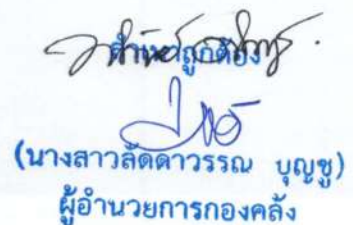 สำเนาถูกต้อง
(นางสาวลัดดาวรรณ บุญชู)
ผู้อำนวยการกองคลัง